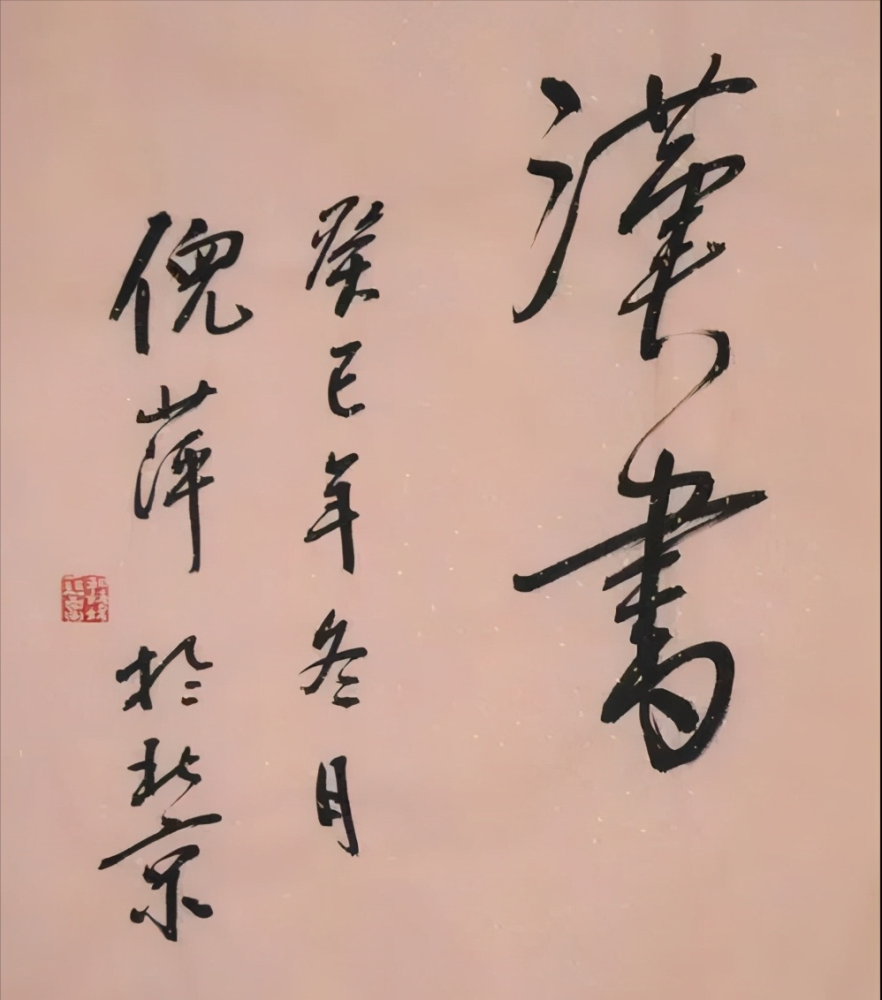 漢書
癸巳年冬月
倪萍 於北京